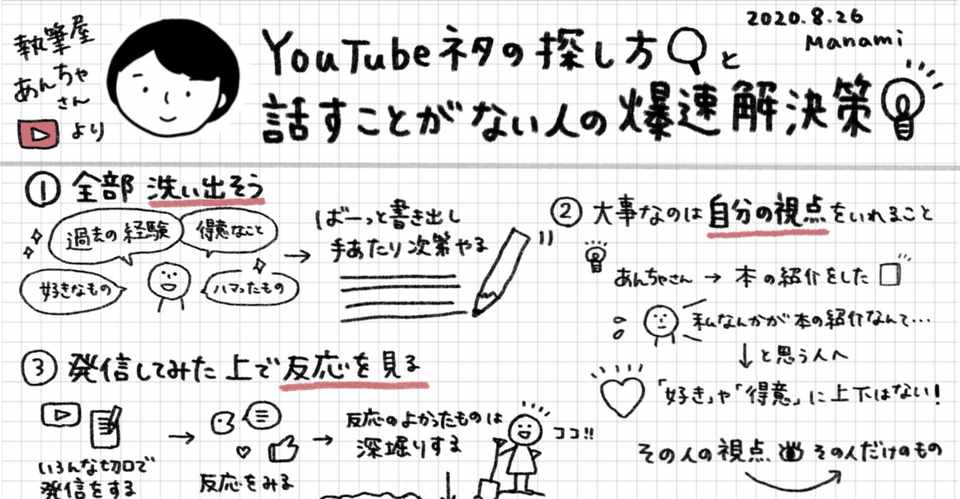 執筆屋
あんちゃ
さん
より
YouTubeネタの探し方と
話すことがない人の爆速解決策
2020.8.26
Manami
① 全部 洗い出そう
過去の経験
得意なこと
好きなもの
ハマったもの
→
ばーっと書き出し
手あたり次第やる
② 大事なのは自分の視点をいれること
あんちゃさん → 本の紹介をした
私なんかが本の紹介なんて…
↓と思う人へ
「好き」や「得意」に上下はない!
その人の視点、
その人だけのもの
③ 発信してみた上で反応を見る
いろんな切口で
発信をする
→
反応をみる
→
反応のよかったものは
深堀りする
↓
ココ!!